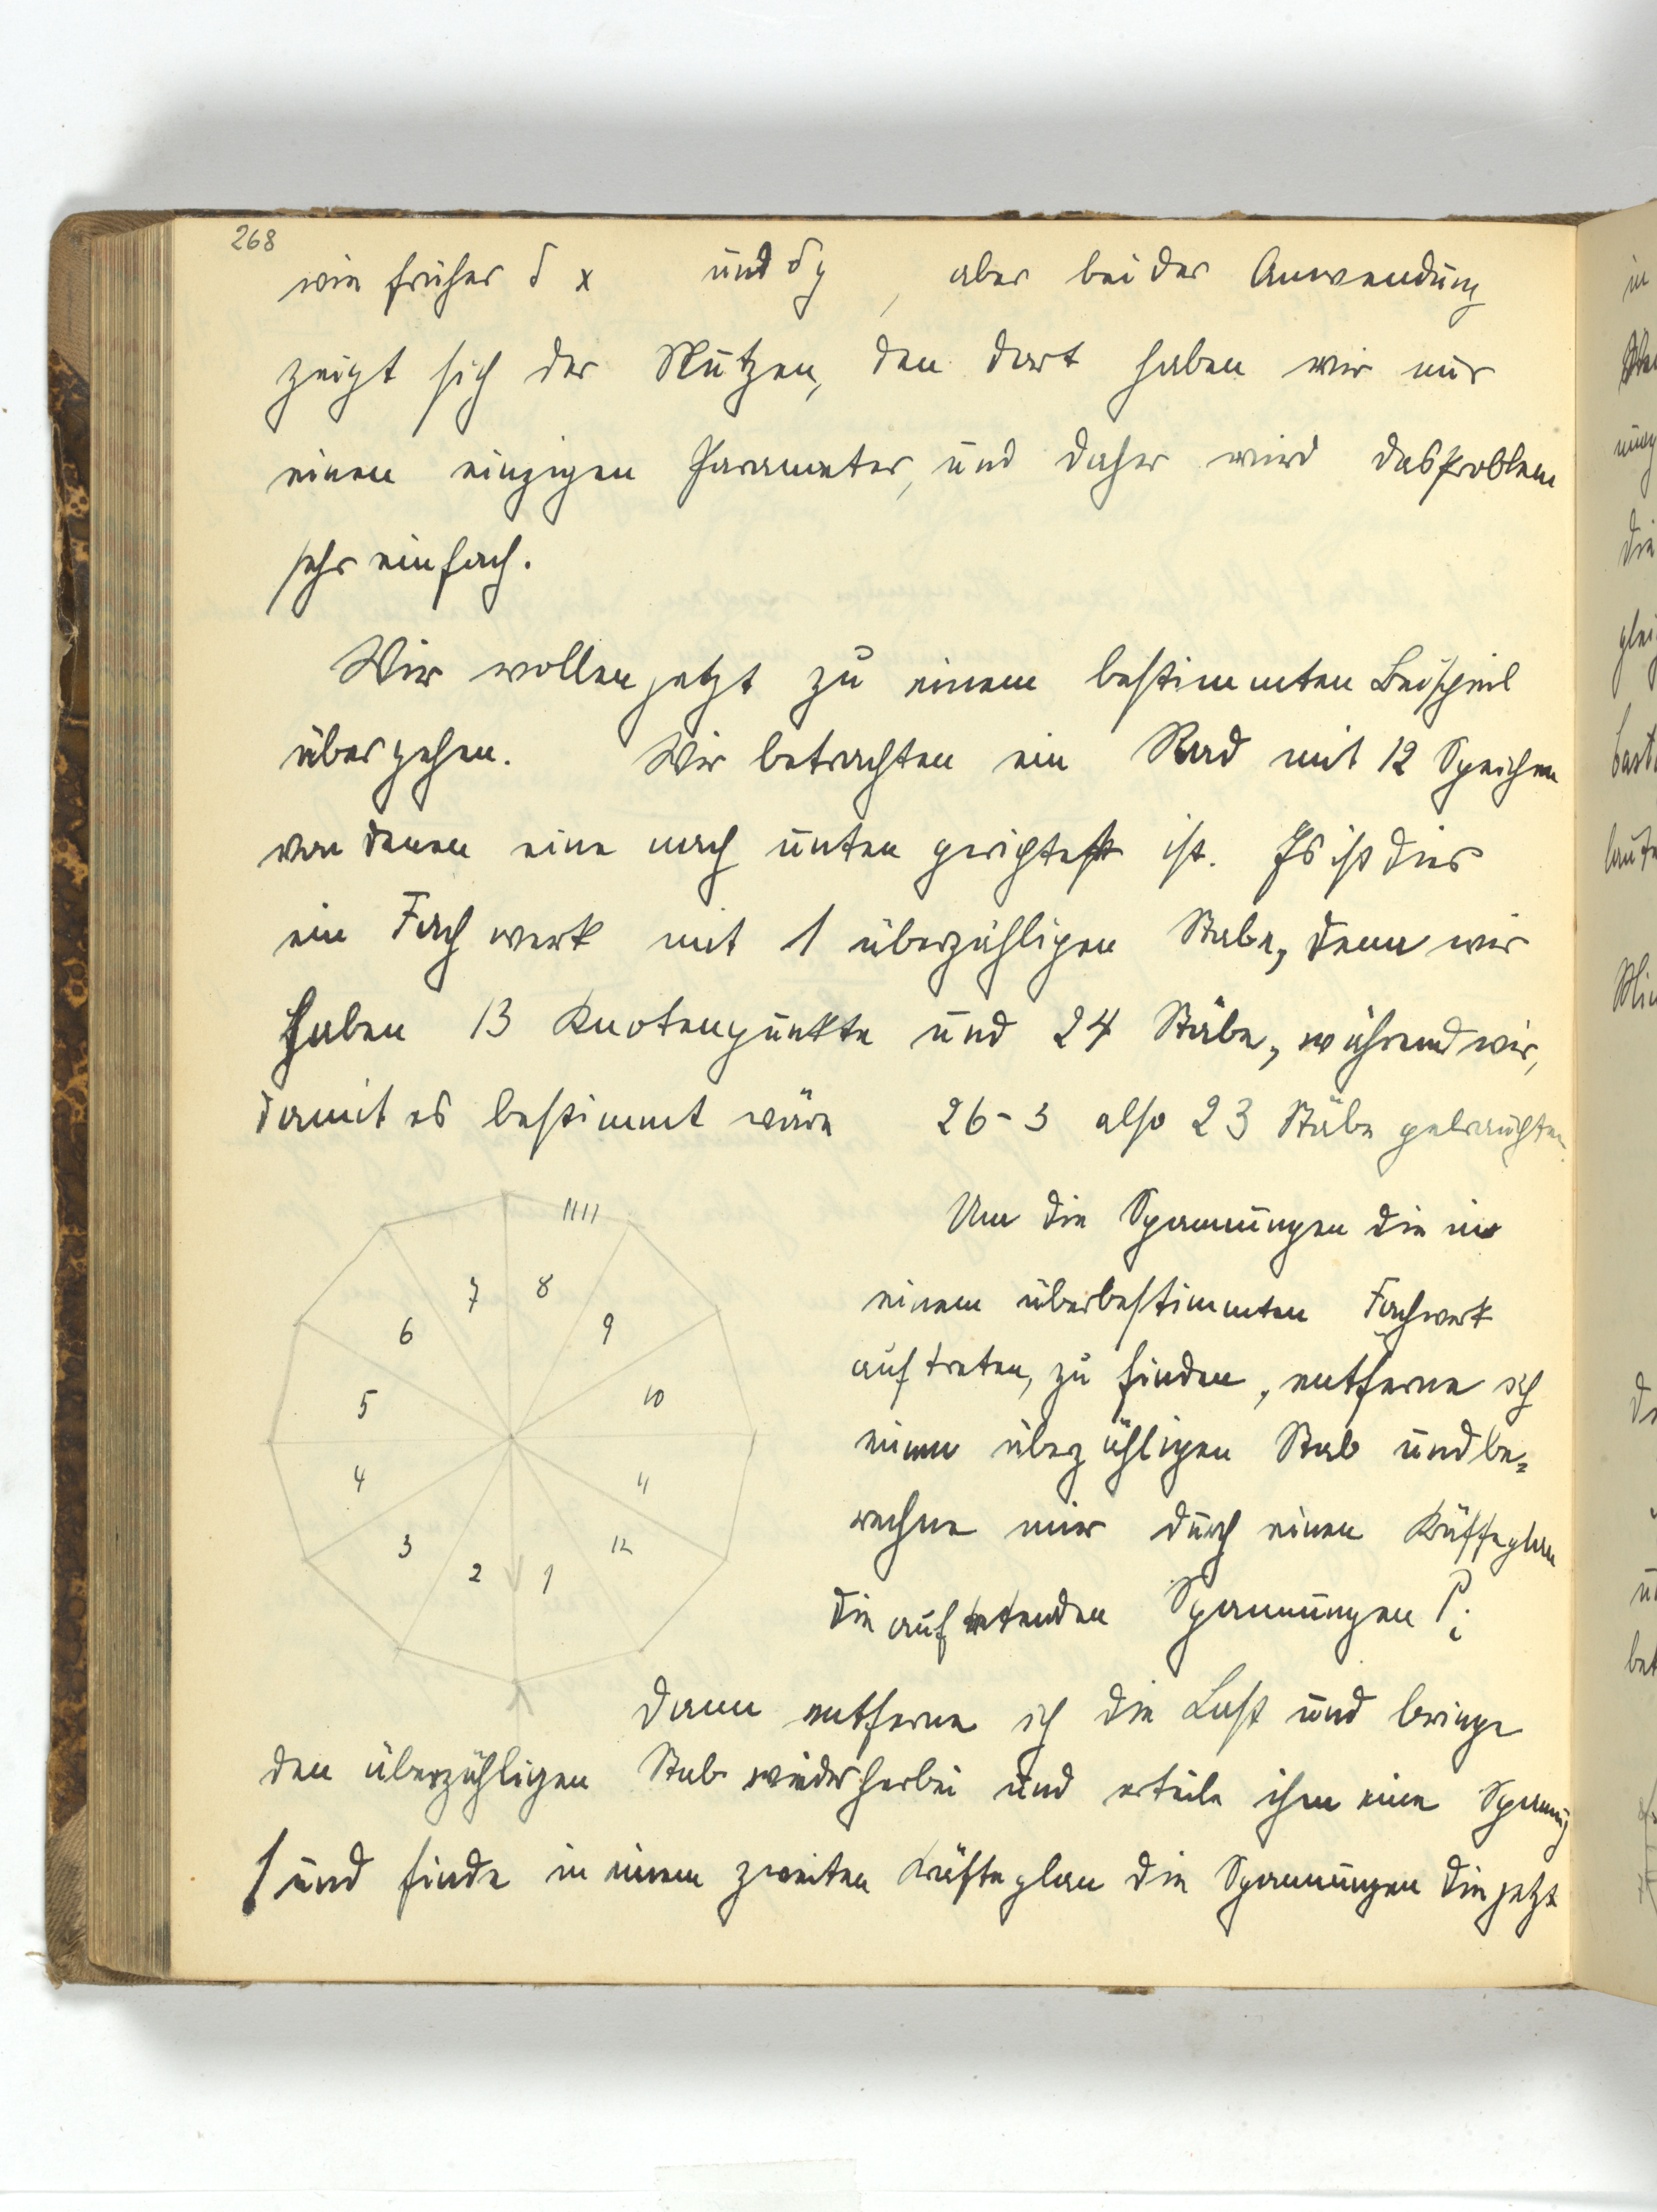 268
wie früher δ x und δy , aber bei der Anwendung
zeigt sich der Nutzen, den dort haben wir nur
einen einzigen Parameter, und daher wird das Problem
sehr einfach.
Wir wollen jetzt zu einem bestimmten Beispiel
übergehen. Wir betrachten ein Rad mit 12 Speichen
von denen eine nach unten gerichtet ist. Es ist dies
ein Fachwerk mit 1 überzähligen Stabe, denn wir
haben 13 Knotenpunkte und 24 Stäbe, während wir,
damit es bestimmt wäre 26-3 also 23 Stäbe gebrauchten.
1111
7 8
6 9
5 10
4 11
3 12
2 1
Um die Spannungen die in
einem überbestimmten Fachwerk
auftreten, zu finden, entferne ich
einen überzähligen Stab und be=
rechne mir durch einen Kräfteplan
die auftretenden Spannungen Pi
Dann entferne ich die Last und bringe
den überzähligen Stab wieder herbei und erteile ihm eine Spannung
1 und finde in einem zweiten Kräfteplan die Spannungen die jetzt